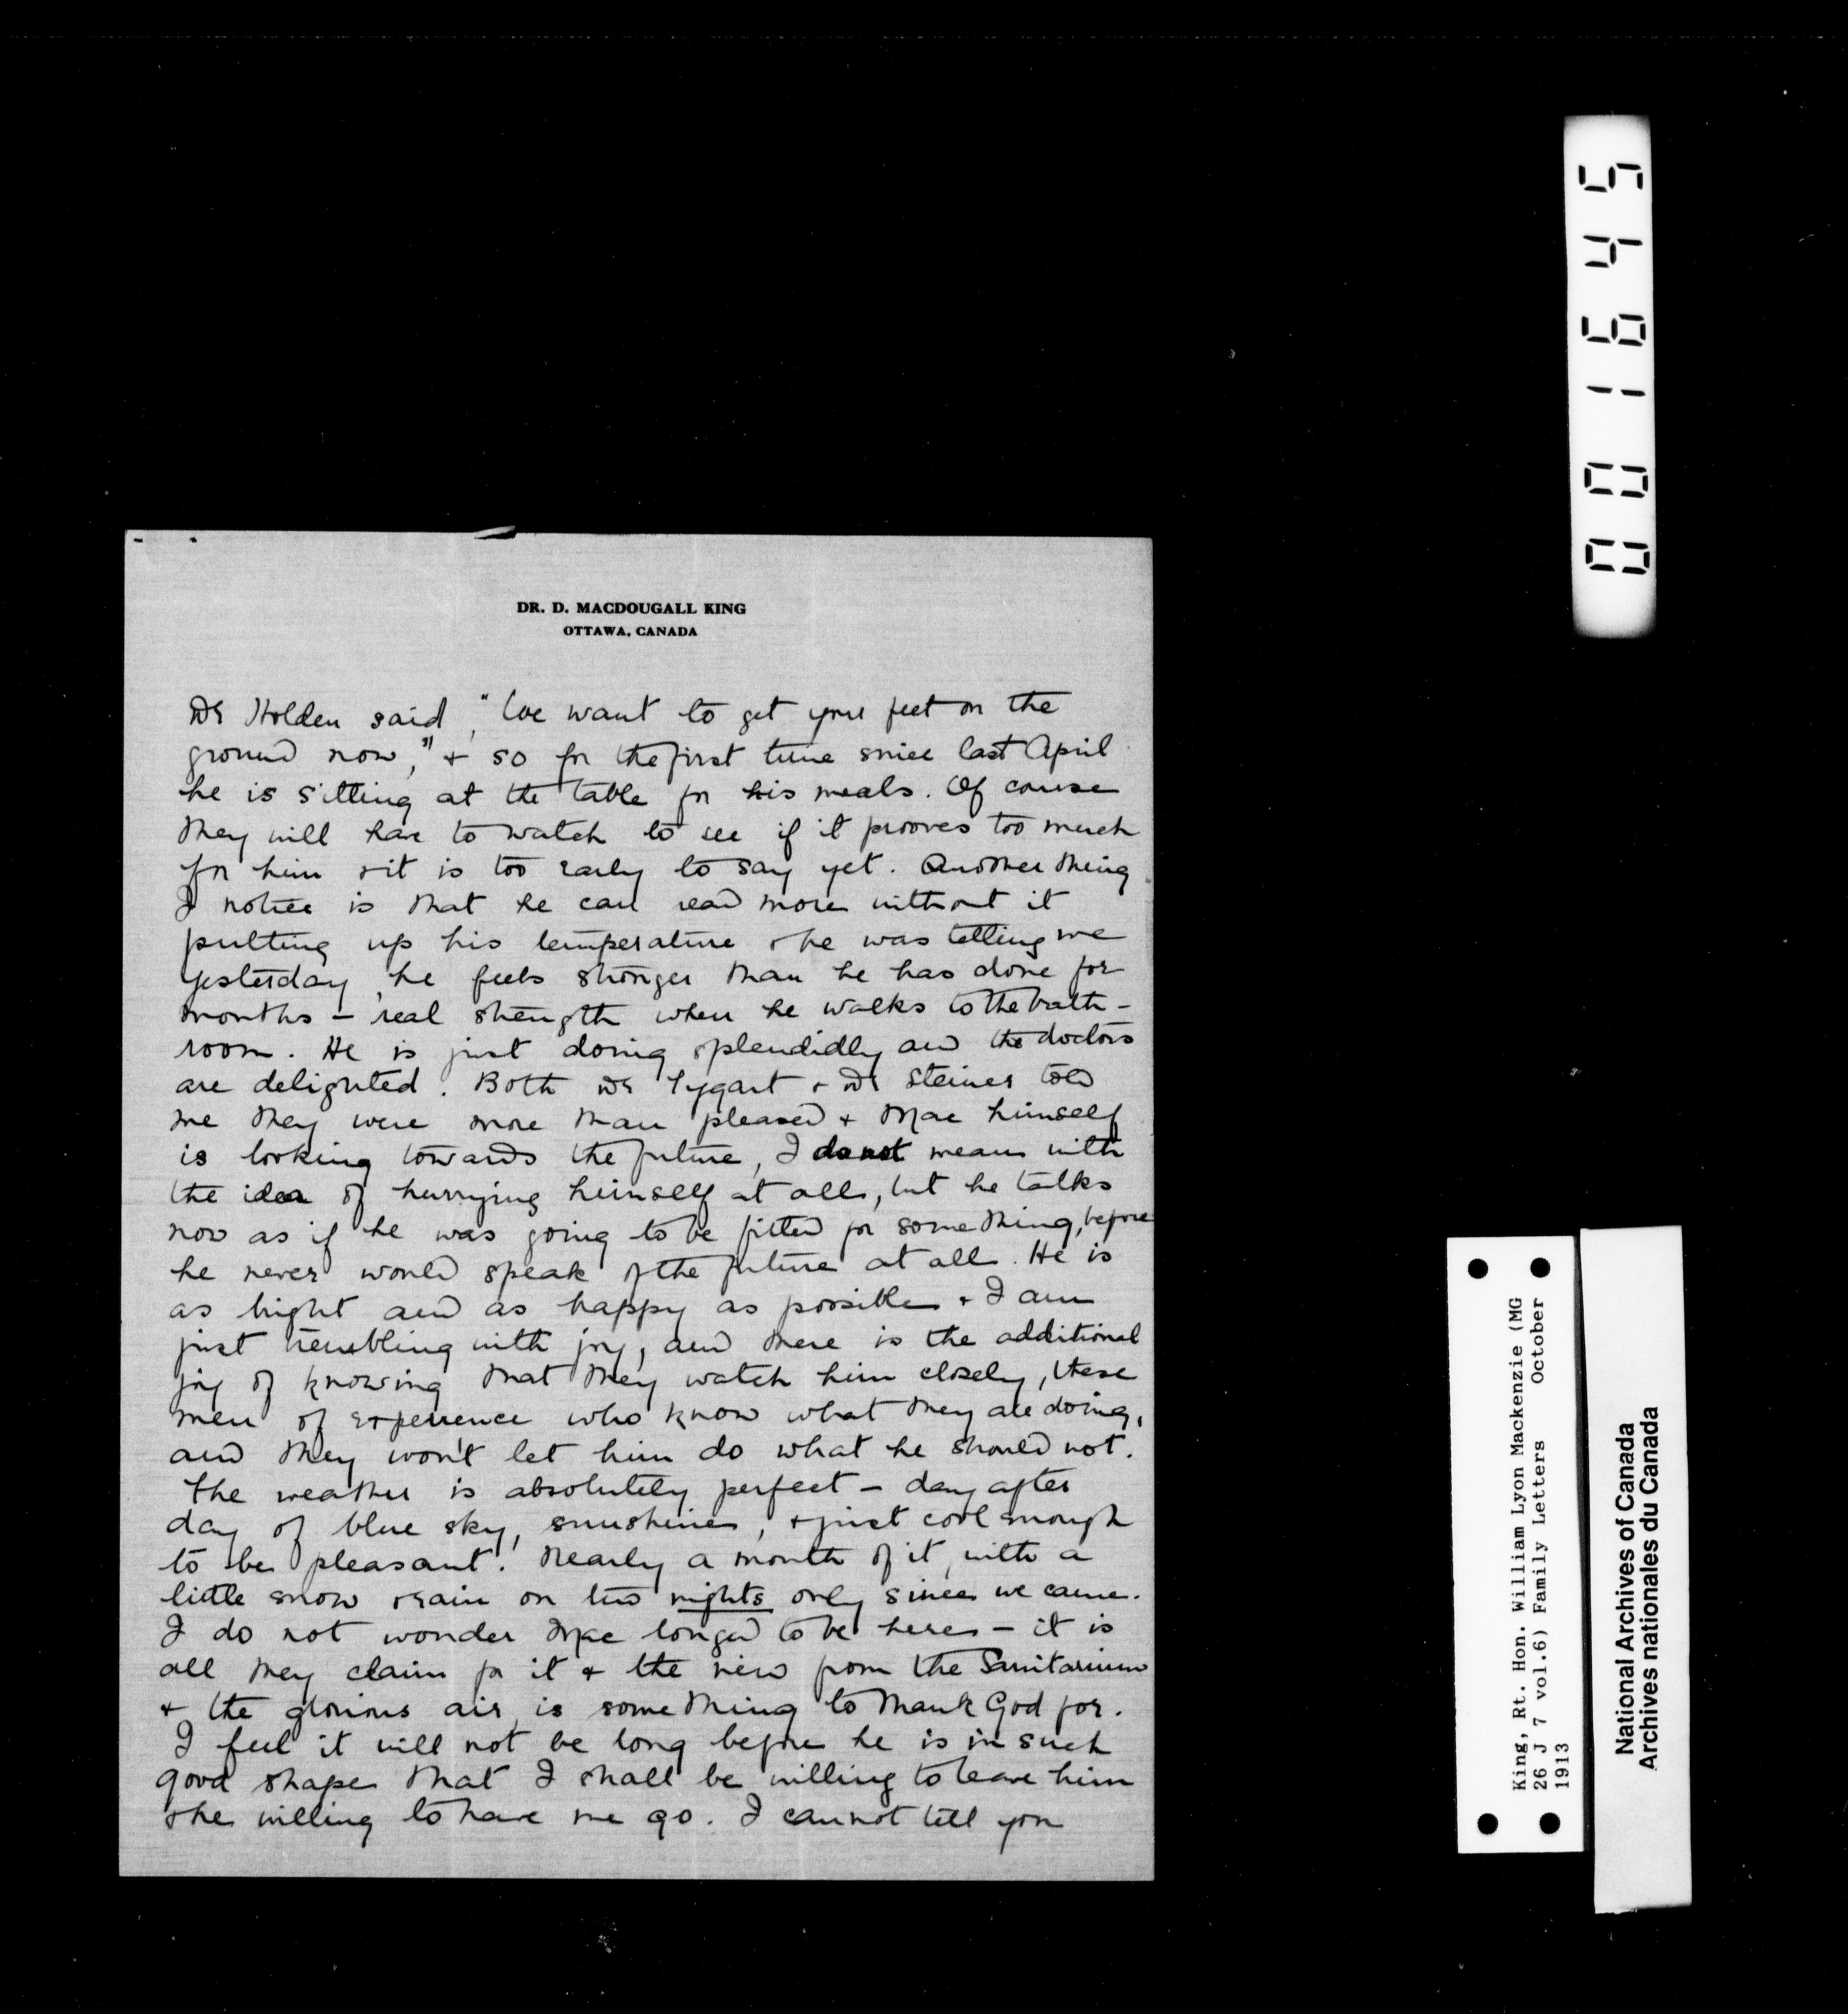 DR. D. MACDOUGALL KING
OTTAWA, CANADA
Dr Holden said, "We want to get your feet on the
ground now," & so for the first time since last April
he is sitting at the table for his meals. Of course
they will have to watch to see if it prooves too much
for him & it is too early to say yet. Another thing
I notice is that he can read more without it
putting up his temperature & he was telling me
yesterday, he feels stronger than he has done for
months - real strength when he walks to the bath-
room. He is just doing splendidly and the doctors
are delighted. Both Dr Tygart & Dr Steiner told
me they were more than pleased & Mac himself
is looking towards the future, I do not mean with
the idea of hurrying himself at all, but he talks
now as if he was going to be fitted for something, before
he never would speak of the future at all. He is
as bright and as happy as possible & I am
just trembling with joy, and there is the additional
joy of knowing that they watch him closely, these
men of experience who know what they are doing,
and they won't let him do what he should not.
The weather is absolutely perfect - day after
day of blue sky, sunshine, & just cool enough
to be pleasant. Nearly a month of it, with a
little snow & rain on two nights only since we came.
I do not wonder Mac longed to be here - it is
all they claim for it & the view from the Sanitarium
& the glorious air, is something to thank God for.
I feel it will not be long before he is in such
good shape that I shall be willing to leave him
& he willing to have me go. I cannot tell you
001645
King, Rt. Hon. William Lyon Mackenzie (MG
26 J 7 vol.6) Family Letters October
1913
National Archives of Canada
Archives nationales du Canada